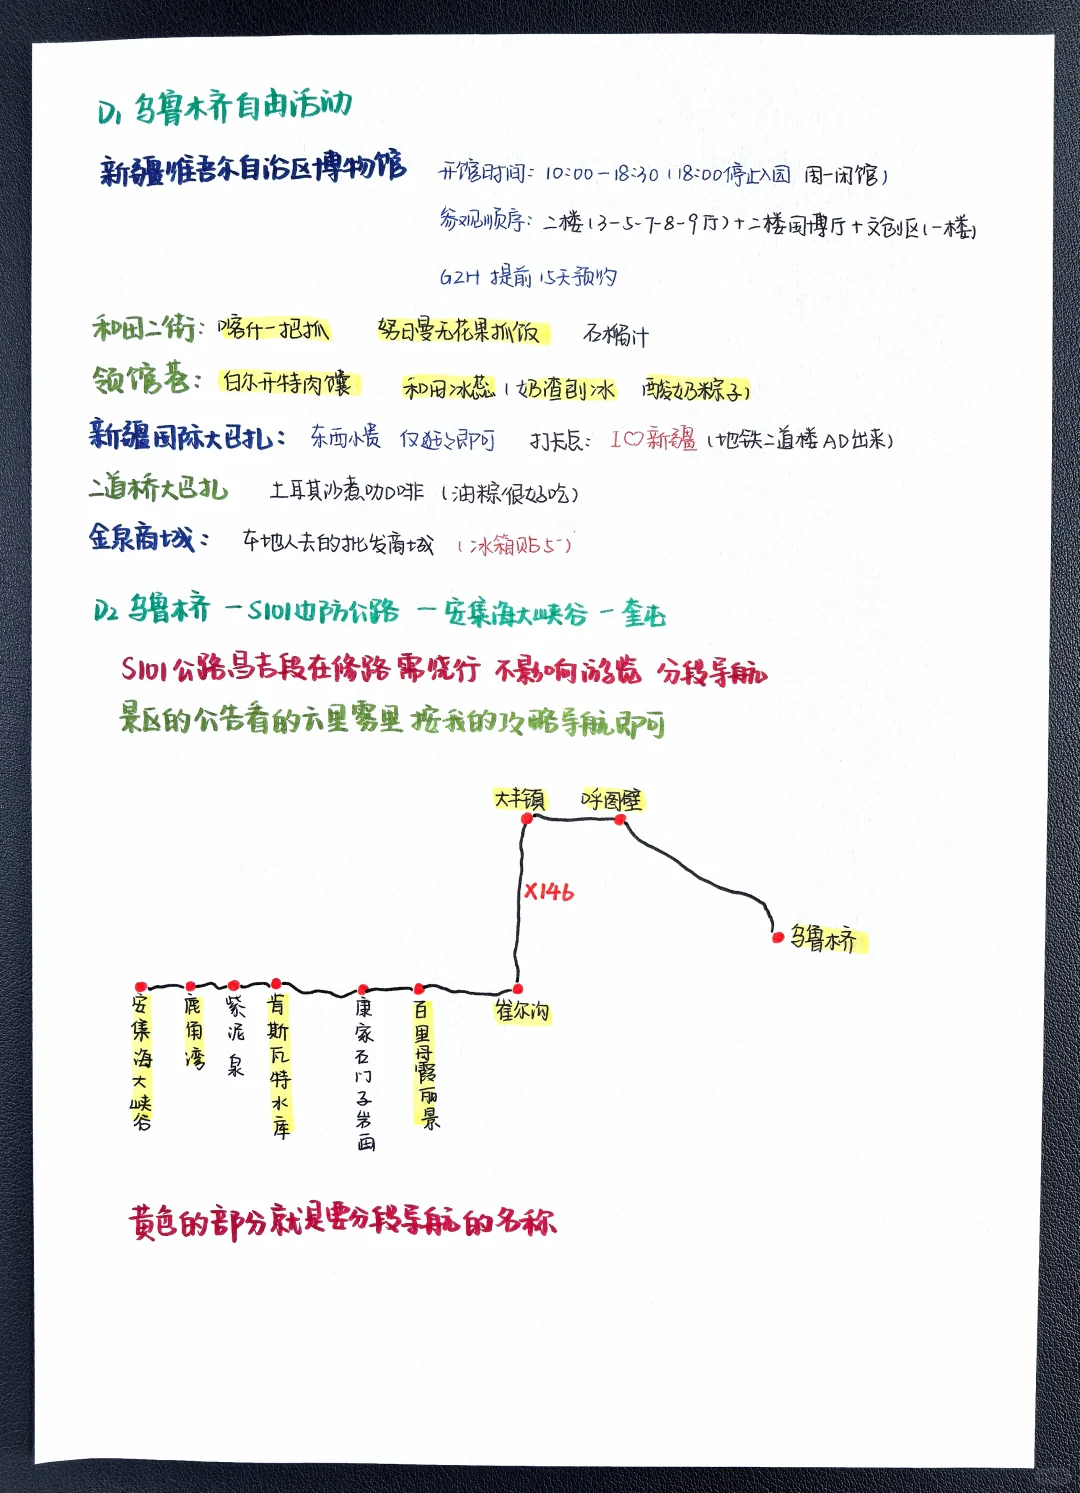 D1 乌鲁木齐自由活动
新疆维吾尔自治区博物馆 开馆时间: 10:00-18:30 (18:00停止入园 周一闭馆)
参观顺序: 二楼(3-5-7-8-9厅)+二楼国博厅+文创区(一楼)
GZH 提前15天预约
和田二街: 喀什一把抓 努日曼无花果抓饭 石榴汁
领馆巷: 白尔开特肉馕 和田冰蕊(奶渣刨冰 酸奶粽子)
新疆国际大巴扎: 东西小贵 仅逛逛即可 打卡点: I♡新疆 (地铁二道桥AD出来)
二道桥大巴扎 土耳其沙煮咖啡 (油粽很好吃)
金泉商城: 本地人去的批发商城 (冰箱贴5)
D2 乌鲁木齐 - S101边防公路 - 安集海大峡谷 - 奎屯
S101公路昌吉段在修路需绕行 不影响游览 分段导航
景区的公告看的云里雾里 按我的攻略导航即可
大丰镇 呼图壁
X146
乌鲁木齐
安集海大峡谷
鹿角湾
紫泥泉
肯斯瓦特水库
康家石门子岩画
百里丹霞丽景
雀尔沟
黄色的部分就是要分段导航的名称